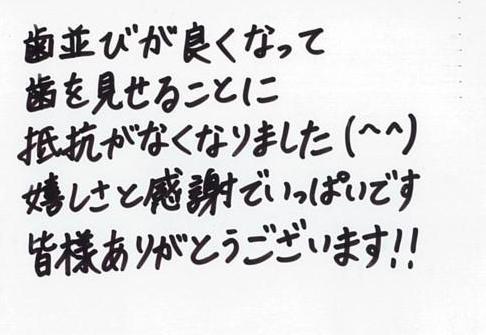 歯並びが良くなって
歯を見せることに
抵抗がなくなりました(^^)
嬉しさと感謝でいっぱいです
皆様ありがとうございます!!